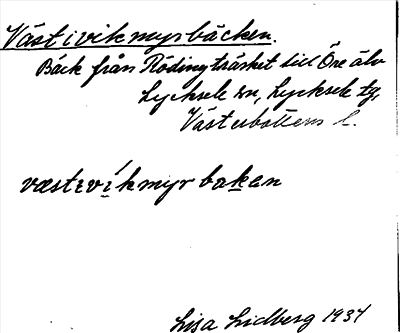 Västivikmyrbäcken.
Bäck från Rödingträsket till Öre älv
Lycksele sn, Lycksele tg,
Västerbottens l.
væstɩvíkmyrbaken
Lisa Lidberg 1937